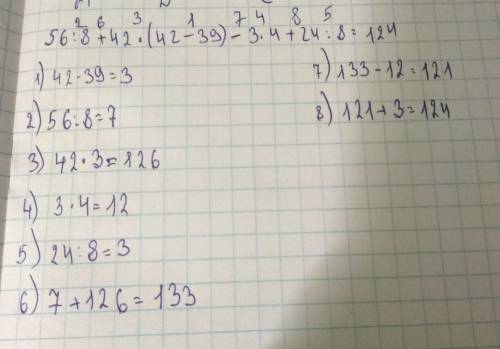 2 6 3 1 7 4 8 5
56:8+42·(42-39)-3·4+24:8=124
1) 42-39=3
2) 56:8=7
3) 42·3=126
4) 3·4=12
5) 24:8=3
6) 7+126=133
7) 133-12=121
8) 121+3=124